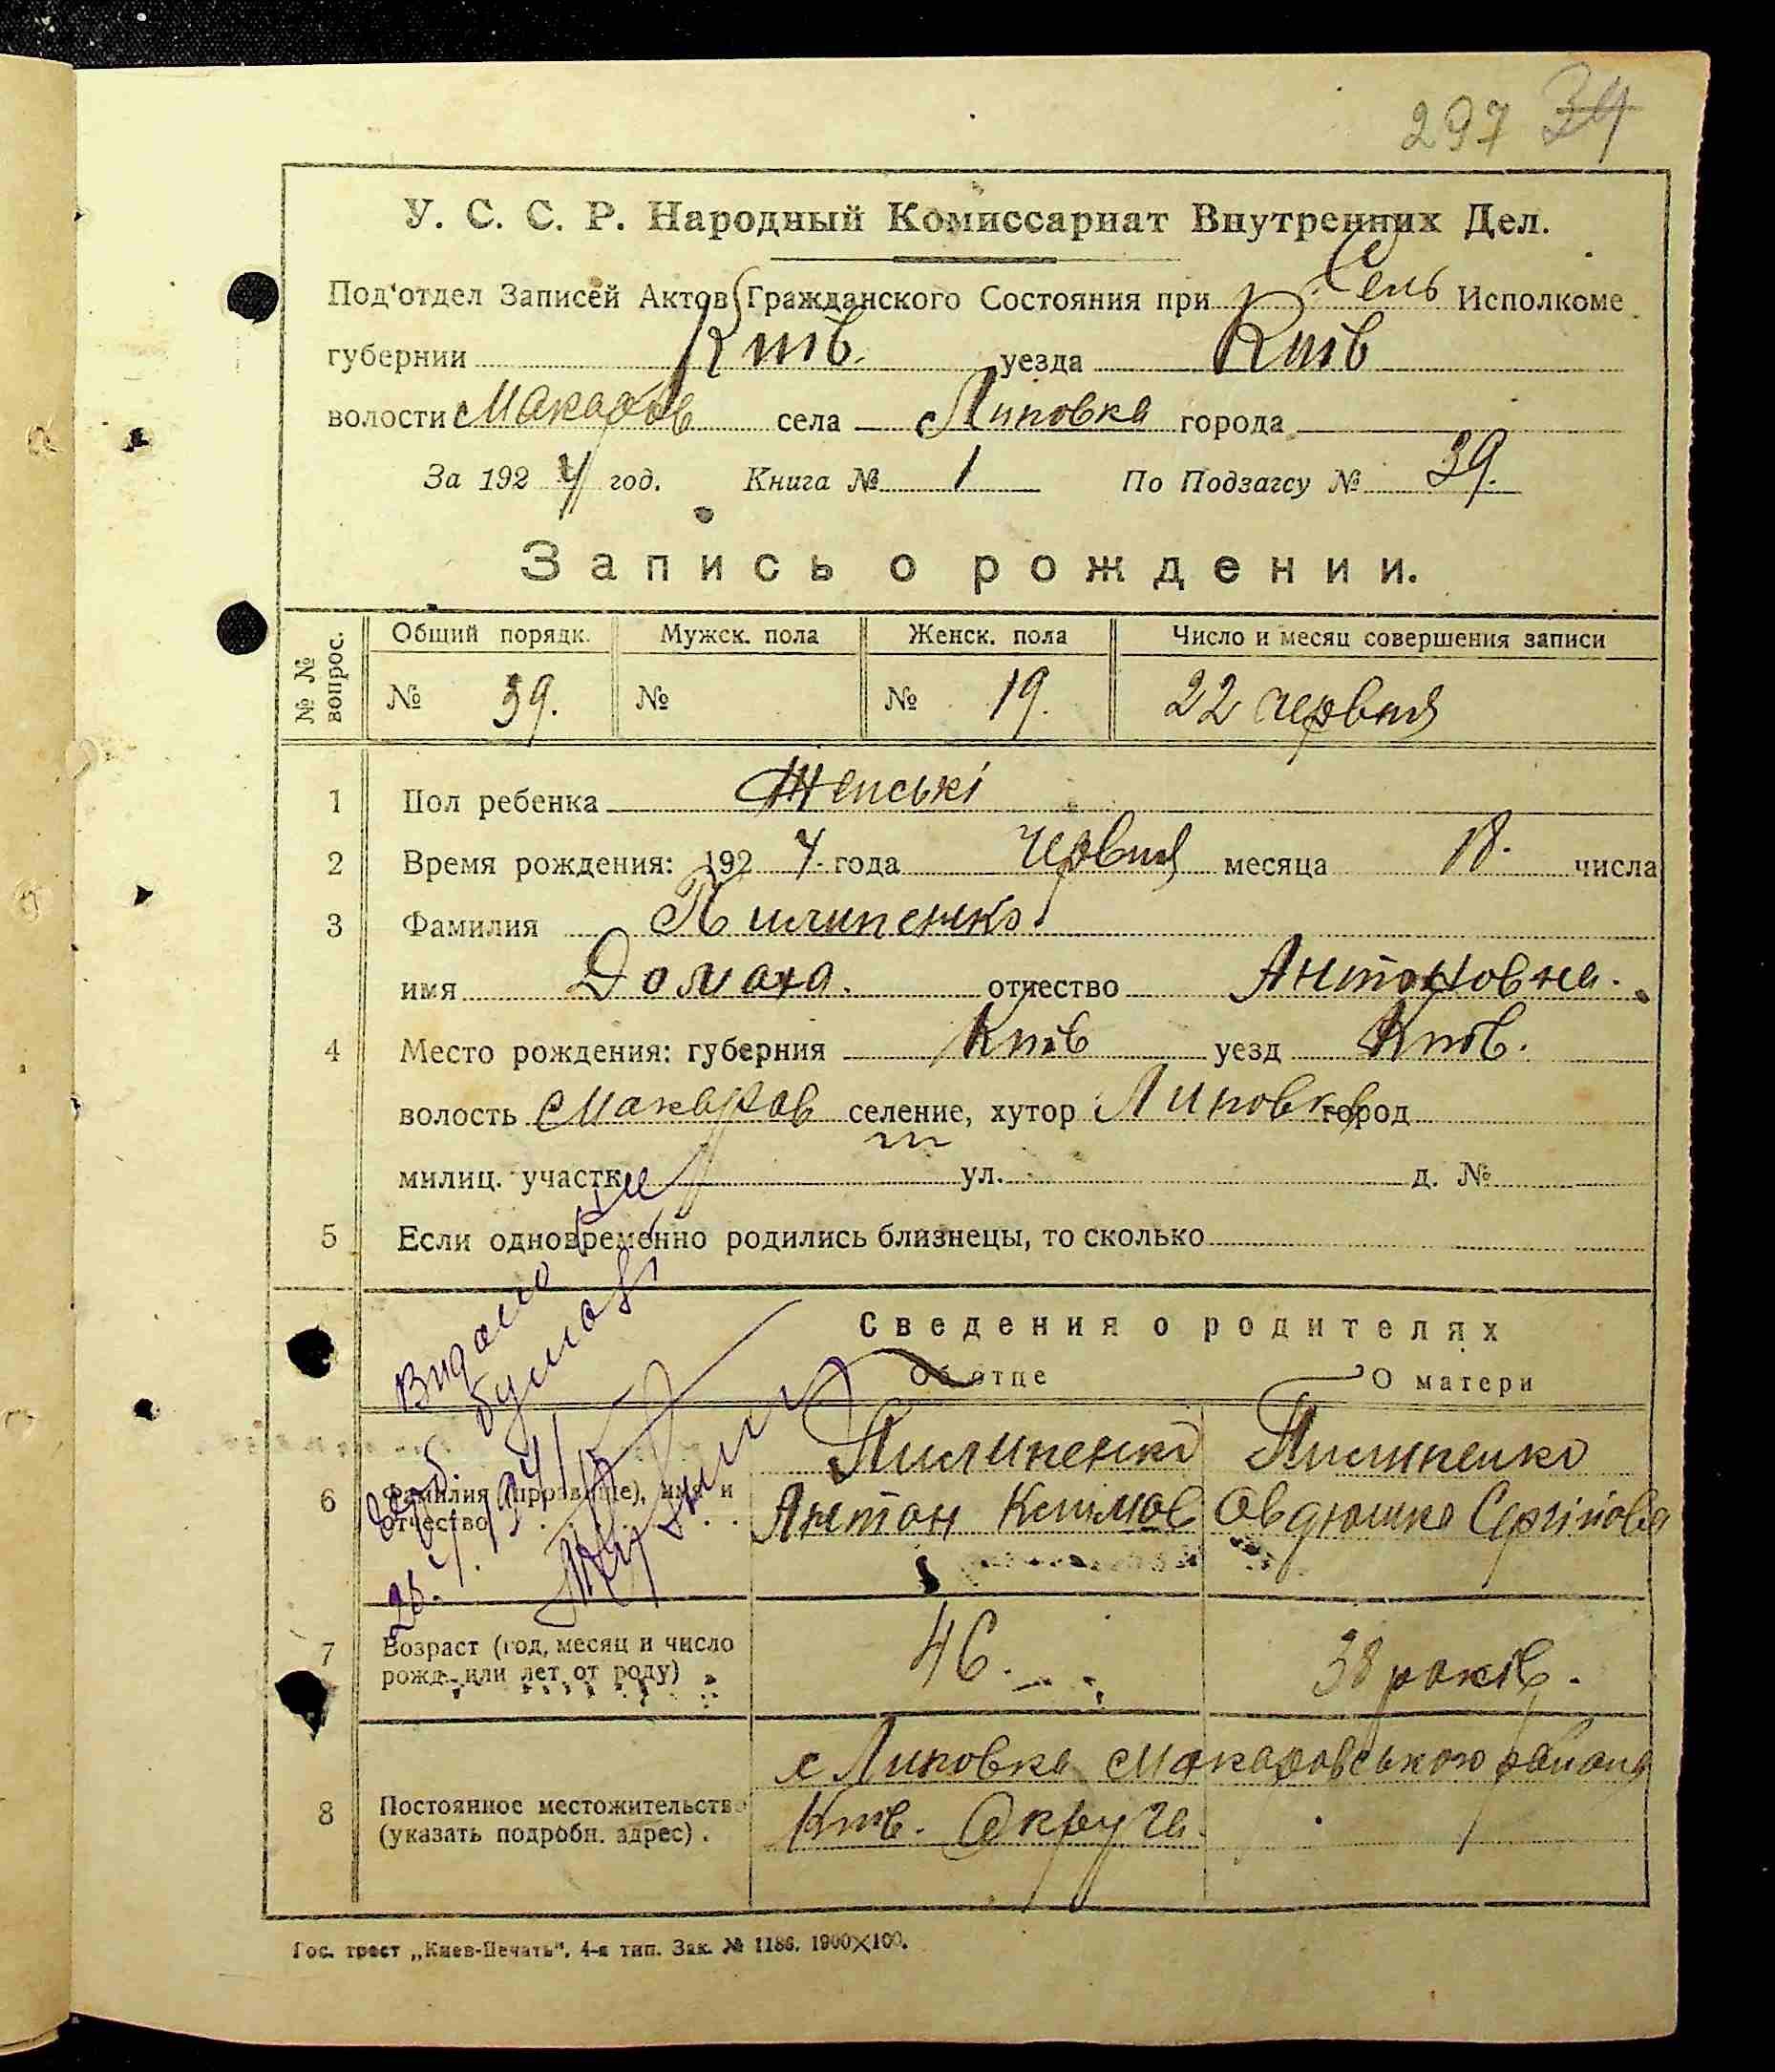 297 34
У. С. С. Р. Народный Комиссариат Внутренних Дел.
Под'отдел Записей Актов Гражданского Состояния при Сель Исполкоме
губернии Київ. уезда Київ
волости Макарів села Липовка города
За 1924 год. Книга № 1 По Подзагсу № 39.
Запись о рождении.
№ № вопрос. Общий порядк. Мужск. пола Женск. пола Число и месяц совершения записи
№ 39. № № 19. 22 червня
1 Пол ребенка Женські
2 Время рождения: 1924. года червня месяца 18. числа
3 Фамилия Пилипенко
имя Домаха. отчество Антоновна.
4 Место рождения: губерния Київ уезд Київ.
волость Макарів селение, хутор Липовка город
милиц. участк ул. д. №
5 Если одновременно родились близнецы, то сколько
Сведения о родителях
Об отце О матери
Видано
6 Фамилия (прозвище), имя и Пилипенко Пилипенко
отчество Антон Климов Овдюшка Сергіївна
7 Возраст (год, месяц и число 46. 38 років.
рожд. или лет от роду)
с Липовка Макаровського района
8 Постоянное местожительство Київ. Округа.
(указать подробн. адрес).
Гос. трест „Киев-Печать“. 4-я тип. Зак. № 1186. 1900×100.